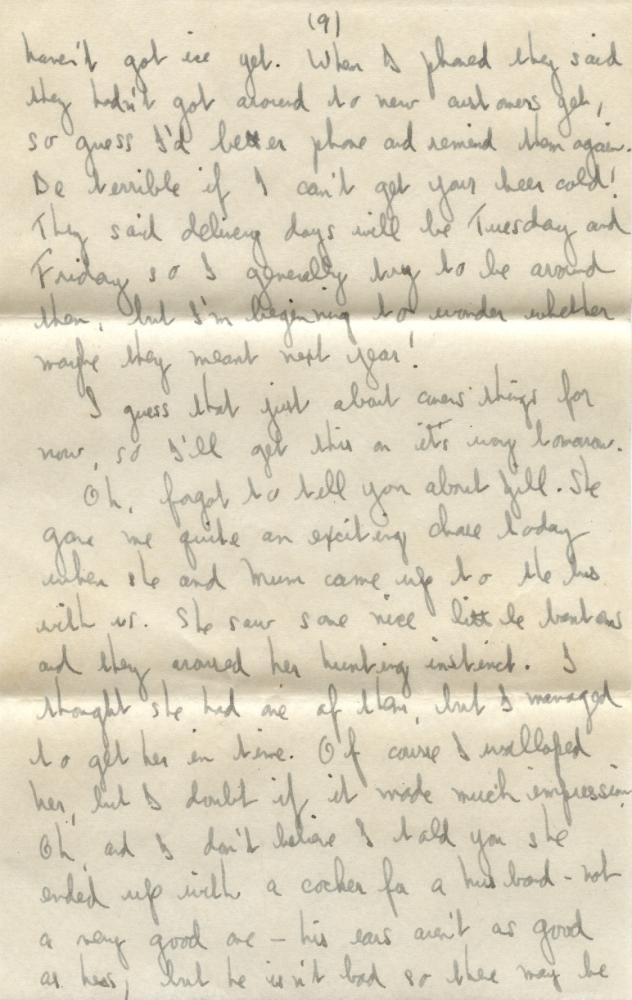 (9)
haven't got ice yet. When I phoned they said
they hadn't got around to new customers yet,
so guess I'd better phone and remind them again.
Be terrible if I can't get your beer cold!
They said delivery days will be Tuesday and
Friday so I generally try to be around
then, but I'm beginning to wonder whether
maybe they meant next year!
I guess that just about covers things for
now, so I'll get this on it's way tomorrow.
Oh, forgot to tell you about Jill. She
gave me quite an exciting chase today
when she and Mum came up to the bus
with us. She saw some nice little bantams
and they aroused her hunting instinct. I
thought she had one of them, but I managed
to get her in time. Of course I walloped
her, but I doubt if it made much impression.
Oh, and I don't believe I told you she
ended up with a cocker for a husband - not
a very good one - his ears aren't as good
as hers, but he isn't bad so there may be